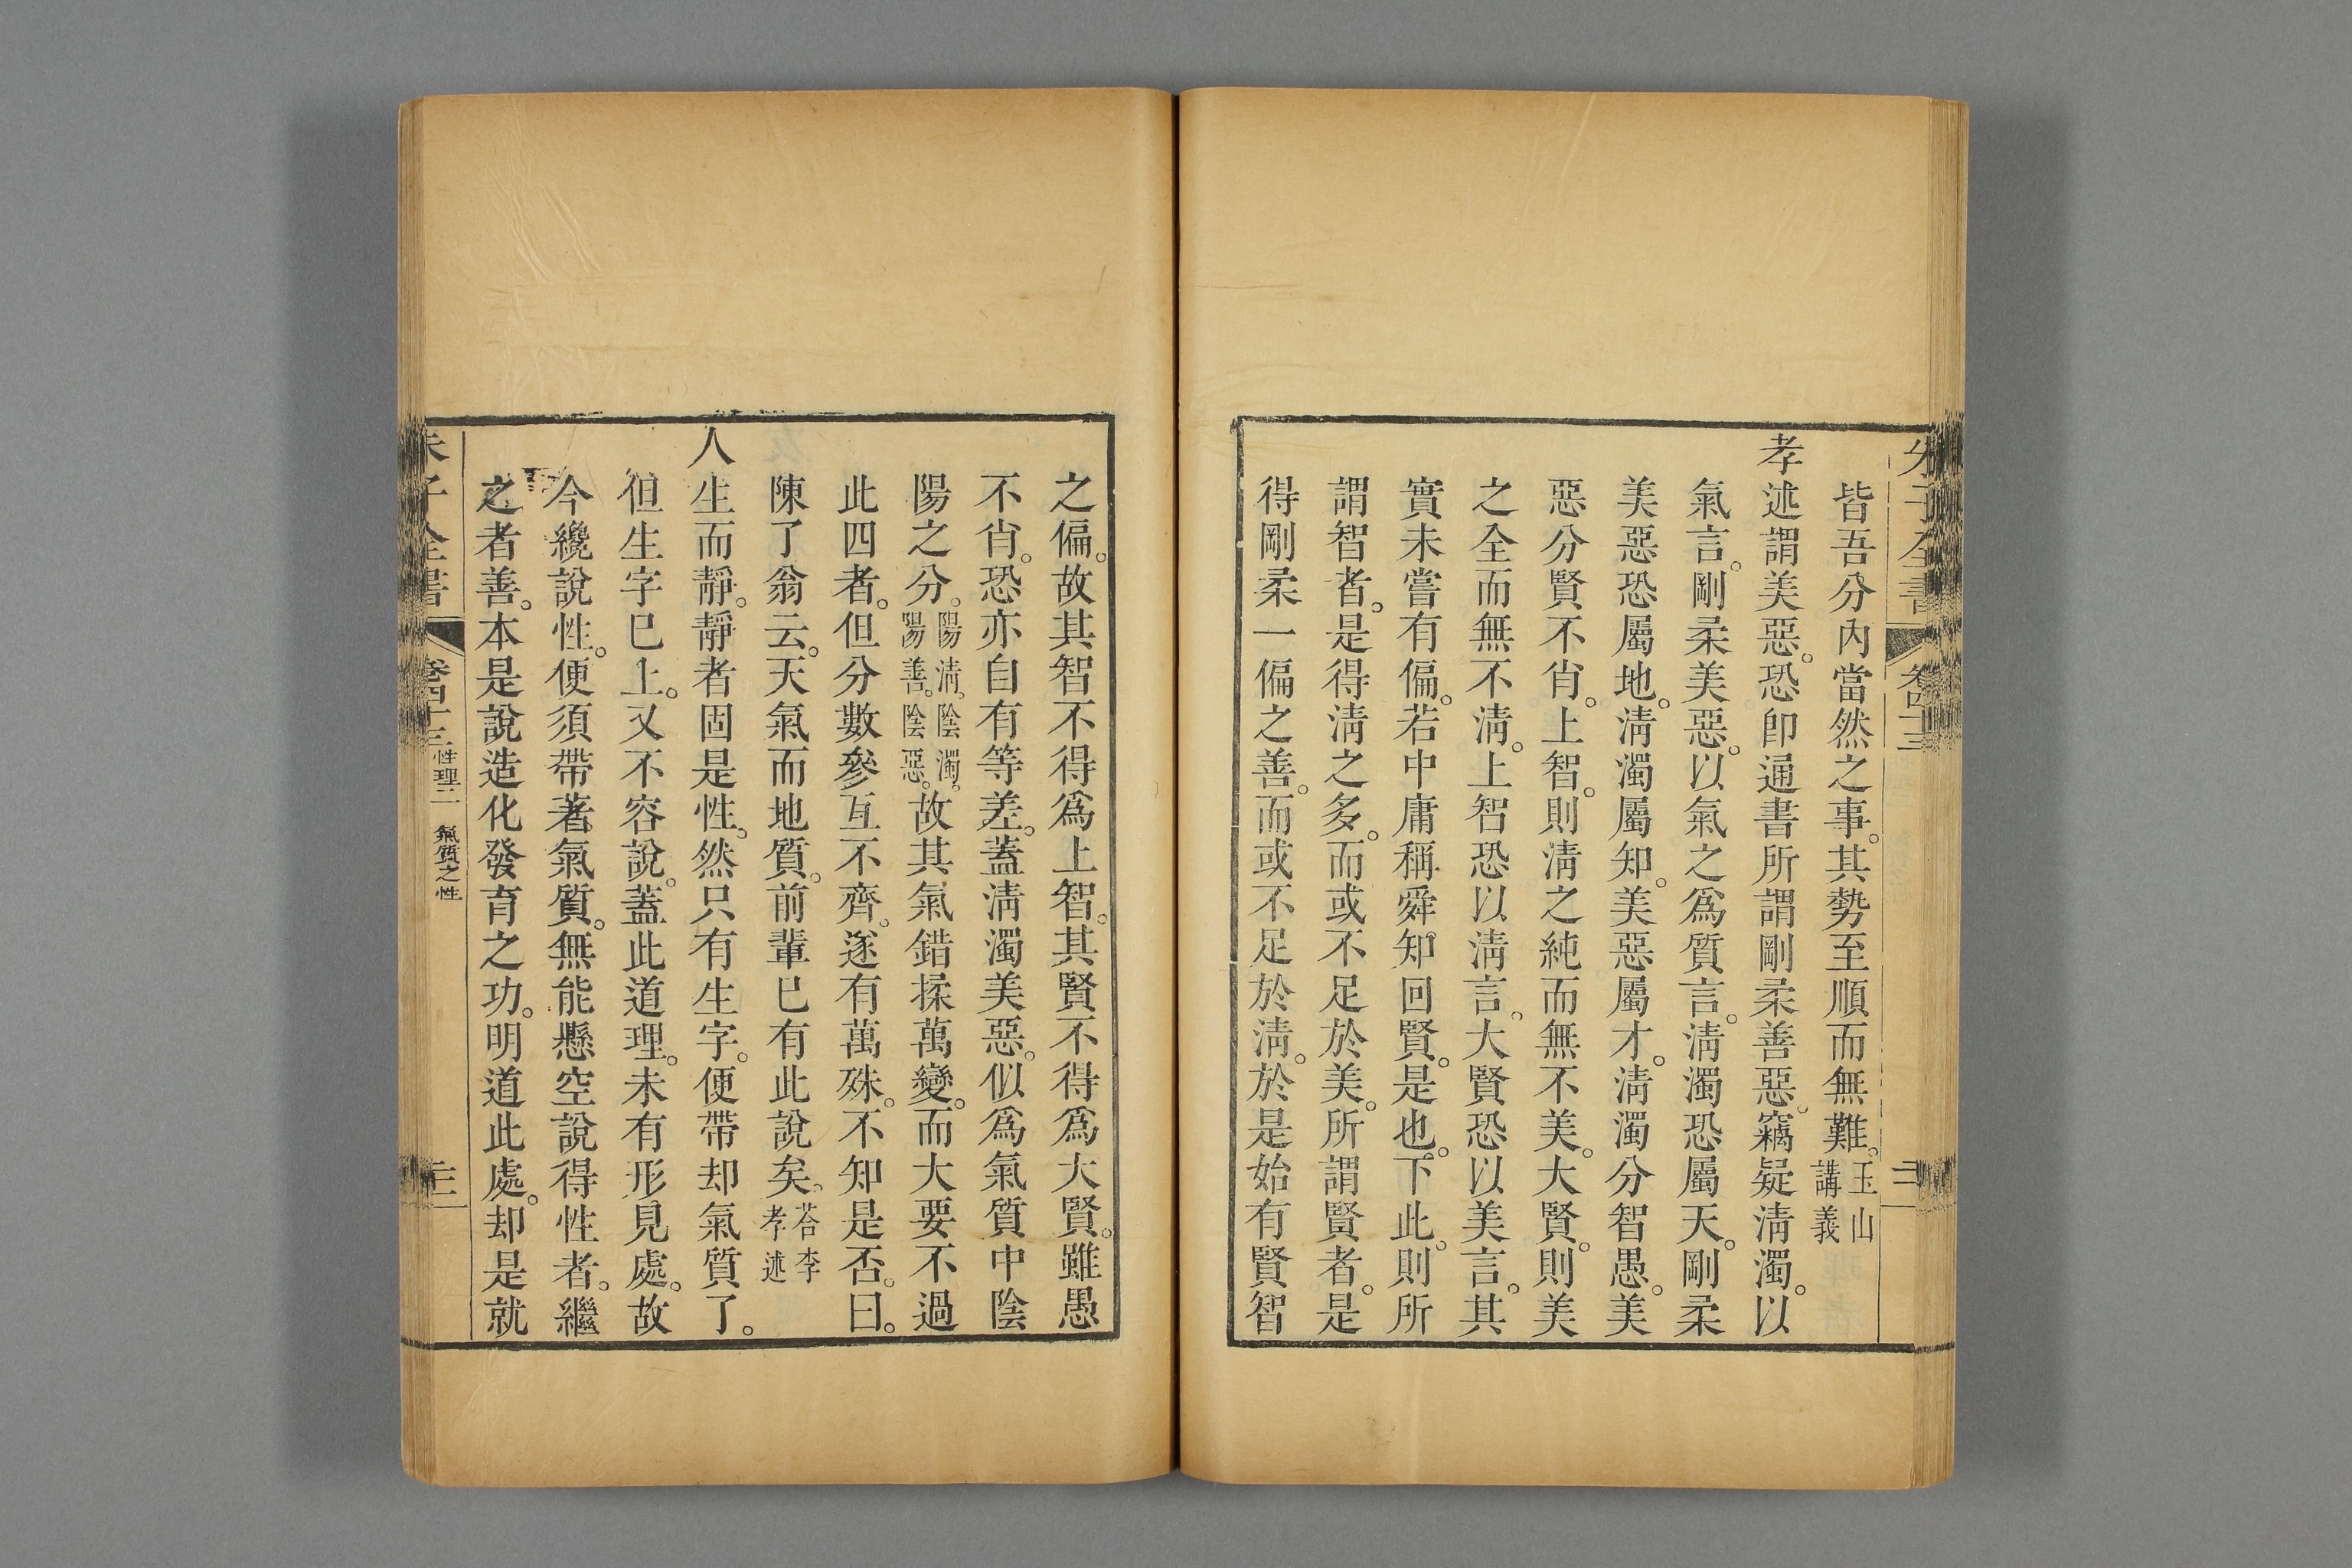 朱子全書 卷四十三
皆吾分內當然之事。其勢至順而無難。玉山講義
孝述謂美惡。恐卽通書所謂剛柔善惡。竊疑淸濁。以
氣言。剛柔美惡。以氣之爲質言。淸濁恐屬天。剛柔
美惡恐屬地。淸濁屬知。美惡屬才。淸濁分智愚。美
惡分賢不肖。上智。則淸之純而無不美。大賢。則美
之全而無不淸。上智恐以淸言。大賢恐以美言。其
實未嘗有偏。若中庸稱舜知回賢。是也。下此。則所
謂智者。是得淸之多。而或不足於美。所謂賢者。是
得剛柔一偏之善。而或不足於淸。於是始有賢智
之偏。故其智不得爲上智。其賢不得爲大賢。雖愚
不肖。恐亦自有等差。蓋淸濁美惡。似爲氣質中陰
陽之分。陽淸。陰濁。陽善。陰惡。故其氣錯揉萬變。而大要不過
此四者。但分數參互不齊。遂有萬殊。不知是否。曰。
陳了翁云。天氣而地質。前輩已有此說矣。荅李孝述
人生而靜。靜者固是性。然只有生字。便帶却氣質了。
但生字已上。又不容說。蓋此道理。未有形見處。故
今纔說性。便須帶著氣質。無能懸空說得性者。繼
之者善。本是說造化發育之功。明道此處。却是就
朱子全書 卷四十三 性理二 氣質之性